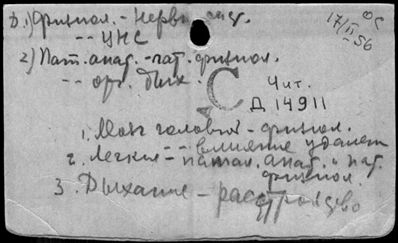 2.1) Физиол. - нервн. сист.
-- ЦНС
2) Пат. анат. - пат. физиол.
-- орг. дых.
17/II 56
С
Чит.
Д 14911
1. Мозг головной - физиол.
-- влияние удален
2. Легкие -- патол. анат. и пат.
физиол.
3. Дыхание - расстройство